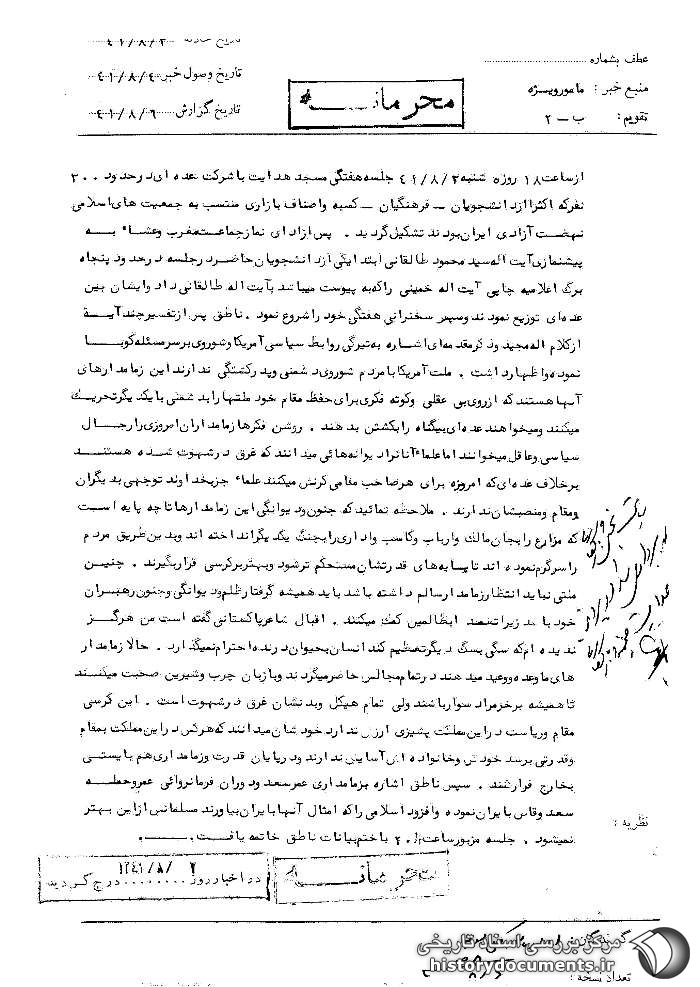 عطف بشماره
منبع خبر : مامور ویژه
تقویم : ب - ۲
تاریخ وصول خبر ۴۱/۸/۴
تاریخ گزارش ۴۱/۸/۶
محرمانه
از ساعت ۱۸ روز ه شنبه ۴۱/۸/۲ جلسه هفتگی مسجد هدایت با شرکت عده ای در حدود ۳۰۰
نفر که اکثرا از دانشجویان - فرهنگیان - کسبه واصناف بازاری منتسب به جمعیت های اسلامی
نهضت آزادی ایران بودند تشکیل گردید . پس از ادای نماز جماعت مغرب وعشاء به
پیشنمازی آیت اله سید محمود طالقانی ابتدا یکی از دانشجویان حاضر در جلسه در حدود پنجاه
برگ اعلامیه چاپی آیت اله خمینی را که به پیوست میباشد بآیت اله طالقانی داد وایشان بین
عده ای توزیع نمودند وسپس سخنرانی هفتگی خود را شروع نمود . ناطق پس از تفسیر چند آیه
از کلام اله مجید وذکر مقدمه ای اشاره به تیرگی روابط سیاسی آمریکا وشوروی بر سر مسئله کوبا
نموده واظهار داشت . ملت آمریکا با مردم شوروی دشمنی وپدر کشتگی ندارند این زمامدارهای
آنها هستند که از روی بی عقلی وکوته فکری برای حفظ مقام خود ملتها را بدشمنی با یکدیگر تحریک
میکنند ومیخواهند عده ای بیگناه را بکشتن بدهند . روشن فکرها زمامداران امروزی را رجال
سیاسی وعاقل میخوانند اما علماء آنانرا دیوانه هائی میدانند که غرق در شهوت شده هستند
برخلاف عده ای که امروزه برای هر صاحب مقامی کرنش میکنند علماء جز بخداوند توجهی بدیگران
ومقام ومنصبشان ندارند . ملاحظه نمائید که جنون ودیوانگی این زمامدارها تا چه پایه است
که مزارع را بجان مالک وارباب وکاسب واداری را بجنگ یکدیگر انداخته اند وبدین طریق مردم
را سرگرم نموده اند تا پایه های قدرتشان مستحکم تر شود وبهتر بر کرسی قرار بگیرند . چنین
ملتی نباید انتظار زمامدار سالم داشته باشد باید همیشه گرفتار ظلم ودیوانگی وجنون رهبران
خود باشد زیرا تعمدا بظالمین کمک میکنند . اقبال شاعر پاکستانی گفته است من هرگز
ندیده ام که سگی بسگ دیگر تعظیم کند انسان بحیوان درنده احترام نمیگذارد . حالا زمامدار
های ما وعده ووعید میدهند در تمام مجالس حاضر میگردند وبا زبان چرب وشیرین صحبت میکنند
تا همیشه بر خر مراد سوار باشند ولی تمام هیکل وبدنشان غرق در شهوت است . این کرسی
مقام وریاست در این مملکت پشیزی ارزش ندارد خودشان میدانند که هر کس در این مملکت بمقام
وقدرتی برسد خودش وخانواده اش آسایش ندارند ودر پایان قدرت وزمامداری هم بایستی
بخارج فرار کنند . سپس ناطق اشاره بزمامداری عمر سعد ودوران فرمانروائی عمر وحمله
سعد وقاص بایران نموده وافزود اسلامی را که امثال آنها بایران بیاورند مسلمانیش از این بهتر
نمیشود . جلسه مزبور ساعت ۲۰ با ختم بیانات ناطق خاتمه یافت .
نظریه :
محرمانه
در اخبار روز ۲ /۱۳۴۱/۸ درج گردید
مرکز بررسی اسناد تاریخی
historydocuments.ir
تعداد نسخه :